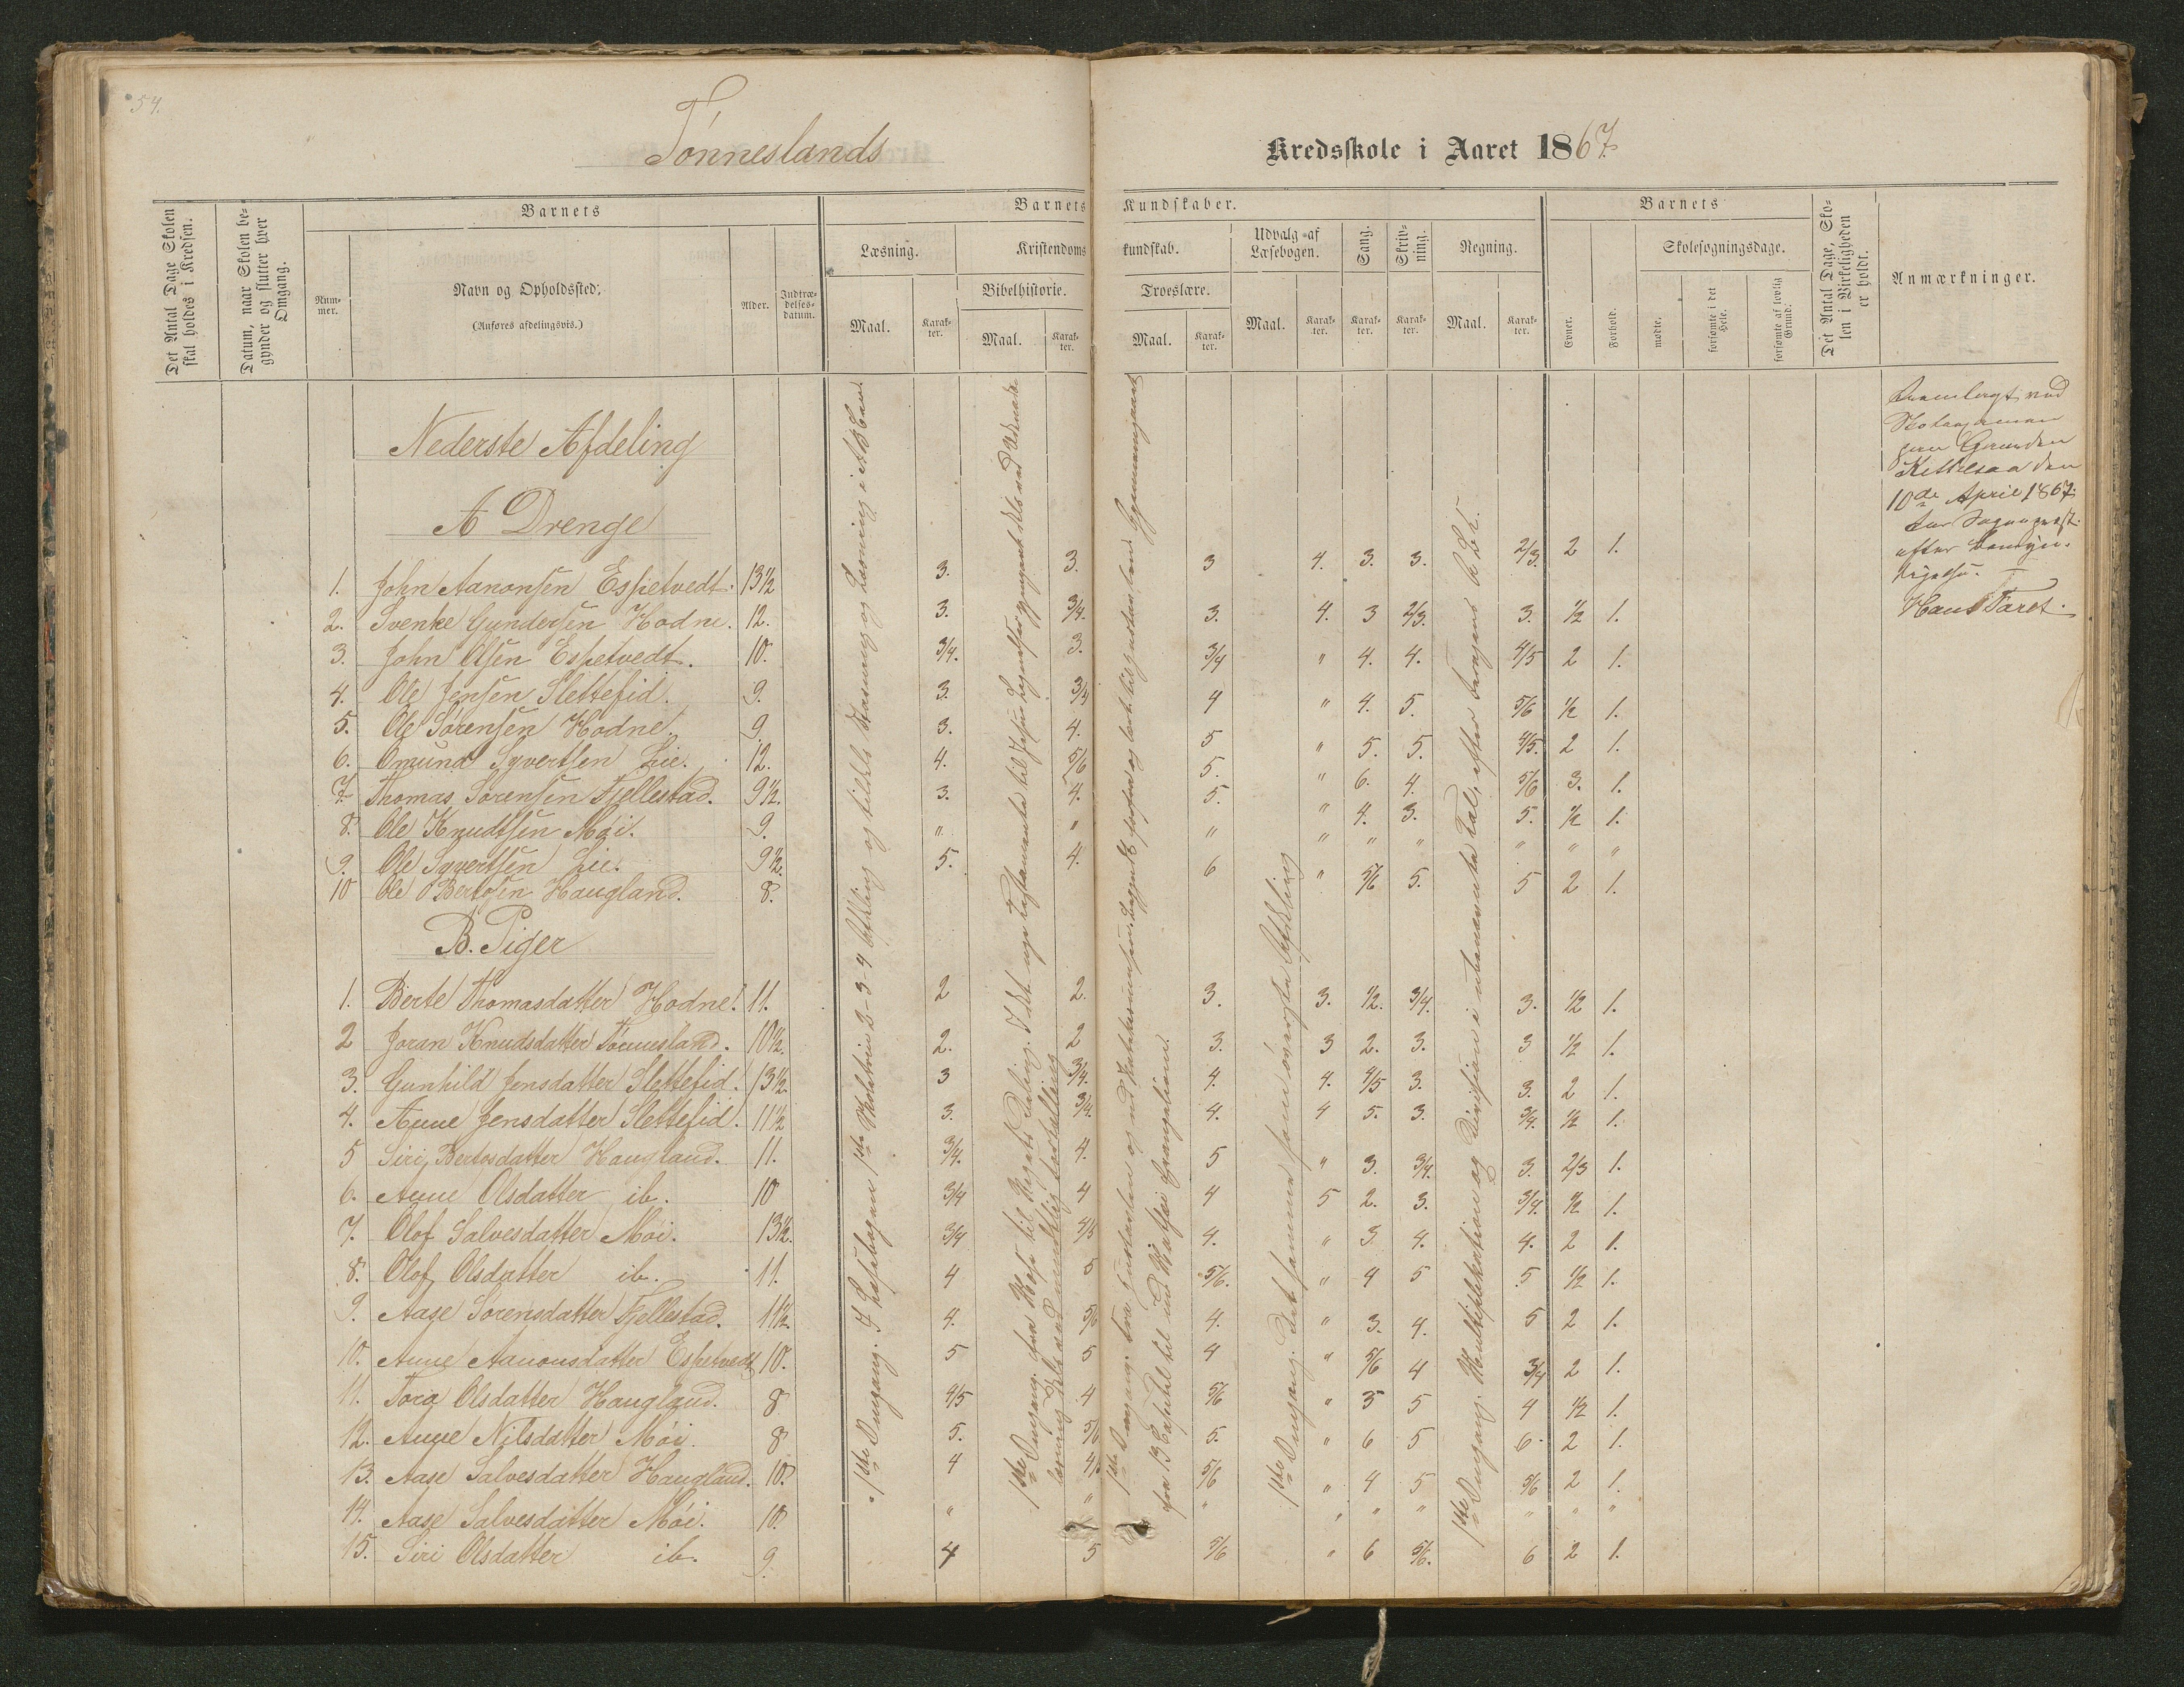 54.
Tönneslands Kredsskole i Aaret 1867.
Det Antal Dage Skolen skal holdes i Kredsen.
Datum, naar Skolen begynder og slutter hver Omgang.
Barnets
Nummer.
Navn og Opholdssted.
(Anføres afdelingsvis.)
Alder.
Indtrædelsesdatum.
Barnets Kundskaber.
Læsning.
Maal.
Karakter.
Kristendomskundskab.
Bibelhistorie.
Maal.
Karakter.
Troeslære.
Maal.
Karakter.
Udvalg af Læsebogen.
Maal.
Karakter.
Sang.
Karakter.
Skrivning.
Karakter.
Regning.
Maal.
Karakter.
Barnets
Evner.
Forhold.
Skolesøgningsdage.
mødte.
forsømte i det Hele.
forsømte af lovlig Grund.
Det Antal Dage, Skolen i Virkeligheden er holdt.
Anmærkninger.
Nederste Afdeling
A Drenge
1. John Aanonsen Espetvedt. 13½ 3. 3. 3 4. 3. 3. 2/3. 2 1.
2. Svenke Gundersen Hodne. 12. 3. 3/4. 3. 4. 3 2/3. 3. ½ 1.
3. John Olsen Espetvedt. 10. 3/4. 3. 3/4 " 4. 4. 4/5 2 1.
4. Ole Jensen Slettefid. 9. 3. 3/4 4 " 4. 5. 5/6 ½ 1.
5. Ole Sørensen Hodne. 9. 3. 4. 5 " 5. 5. 4/5. 2 1.
6. Omund Syvertsen Lie. 12. 4. 5/6 5. " 6. 4. 5/6 3. 1.
7. Thomas Sørensen Fjellestad. 9½. 3. 4. 5. " 4. 3. 5. ½ 1.
8. Ole Knudtsen Møi. 9. " " " " " " " " "
9. Ole Syvertsen Lie. 9½. 5. 4. 6 " 5/6 5. 5 2 1.
10 Ole Bertosen Haugland. 8.
B. Piger
1. Berte Thomasdatter Hodne. 11. 2 2. 3. 3. ½. 3/4. 3. ½ 1.
2 Joran Knudsdatter Tönnesland. 10½. 2. 2 3. 3 2. 3. 3 ½ 1.
3. Gunhild Jensdatter Slettefid. 13½. 3 3/4. 4. 4. 4/5 3. 3. 2 1.
4. Anne Jensdatter Slettefid. 11½ 3. 3/4. 4. 4 5. 3. 3/4. ½ 1.
5 Siri Bertosdatter Haugland. 11. 3/4. 4. 5 " 3. 3/4. 3. 2/3 1.
6. Anne Olsdatter ib. 10 3/4 4 4 5 2. 3. 3/4. ½ 1.
7. Olof Salvesdatter Møi. 13½. 3/4 4/5 4. " 3 4. 4. 2 1.
8. Olof Olsdatter ib. 11. 4 5 5/6. " 4 5 5 ½ 1.
9. Aase Sorensdatter Fjellestad. 11½. 4. 5/6 4. " 3. 4. 5 2 1.
10. Anne Aanonsdatter Espetvedt 10. 5 5 4 " 5/6 4 3/4 2 1.
11. Tora Olsdatter Haugland. 8 4/5 4 5/6 " 3 5 4 ½ 1.
12. Anne Nilsdatter Møi. 8 5. 5/6 5. " 6 5 6. 2 1.
13. Aase Salvesdatter Haugland. 10. 4 4/5 5/6 " 4 5 5/6 2 1.
14. Aase Salvesdatter Møi. 10. " " " " " " " " "
15. Siri Olsdatter ib. 9. 4 5 5/6 " 6 5/6. 6 2 1.
1ste Omgang. I Læsebogen 1ste Skoletrin 2-3-4 Afdeling og tildels Stavning og Læsning i Abc
1ste Omgang. fra Mose til Rigets Deling. I det nye Testamente til Jesu
læsning dels ved mundtlig fortælling
1ste Omgang.
fra 13 Capitel til Matthæi Evangelium.
1ste Omgang. Det samme som øverste Afdeling
1ste Omgang. Multiplikation og Division i ubenævnte Tal, efter
Fremlagt ved
Kittelsaa den
10de April 1867.
for Sognepræst.
efter
Hans Faret.